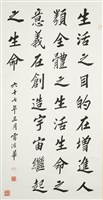 生活之目的在增進人
類全體之生活生命之
意義在創造宇宙繼起
之生命
六十七年五月